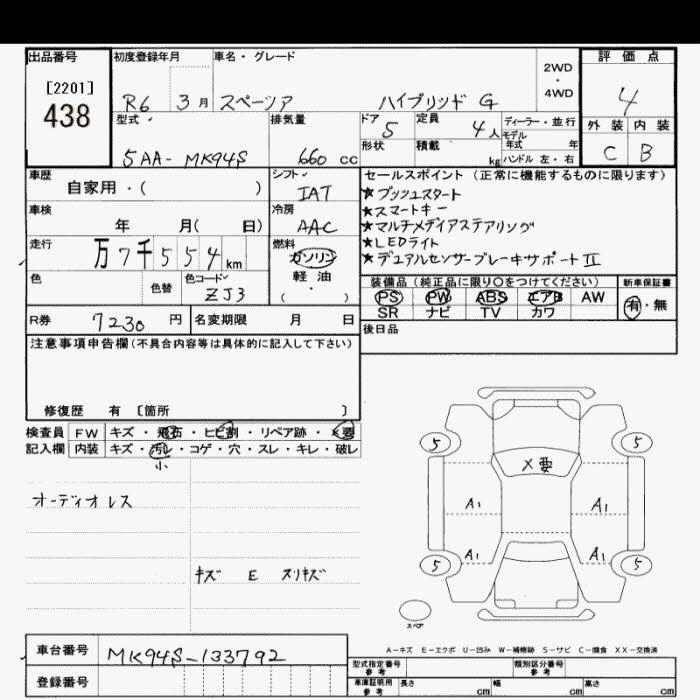 出品番号 初度登録年月 車名・グレード 評価点
[2201]
438
R6 3月 スペーシア ハイブリッド G 2WD・4WD 4
型式 排気量 ドア 定員 ディーラー・並行 外装 内装
5AA-MK94S 660 cc 5 4人 モデル年式 年 C B
形状 積載 kg ハンドル 左・右
車歴 シフト セールスポイント (正常に機能するものに限ります)
自家用・( ) IAT ★プッシュスタート
車検 冷房 ★スマートキー
年 月( 日) AAC ★マルチメディアステアリング
走行 燃料 ★LEDライト
万7千554km ガソリン ★デュアルセンサーブレーキサポートII
色 色替 色コード 軽油
ZJ3 (・)
装備品 (純正品に限り○をつけてください) 新車保証書
PS PW ABS エアB AW 有・無
SR ナビ TV カワ
R券 7230円 名変期限 月 日 後日品
注意事項申告欄(不具合内容等は具体的に記入して下さい)
修復歴 有 [箇所 ]
検査員 FW キズ・飛石・ヒビ割・リペア跡・×要
記入欄 内装 キズ・汚レ・コゲ・穴・スレ・キレ・破レ
小
オーディオレス
キズ E スリキズ
5 5
×要
A1 A1
A1 A1
5 5
スペア
A-キズ E-エクボ U-凹み W-補修跡 S-サビ C-腐食 XX-交換済
車台番号 MK94S-133792
登録番号
型式指定番号 参考 類別区分番号 参考
車庫証明用 参考 長さ cm 幅 cm 高さ cm